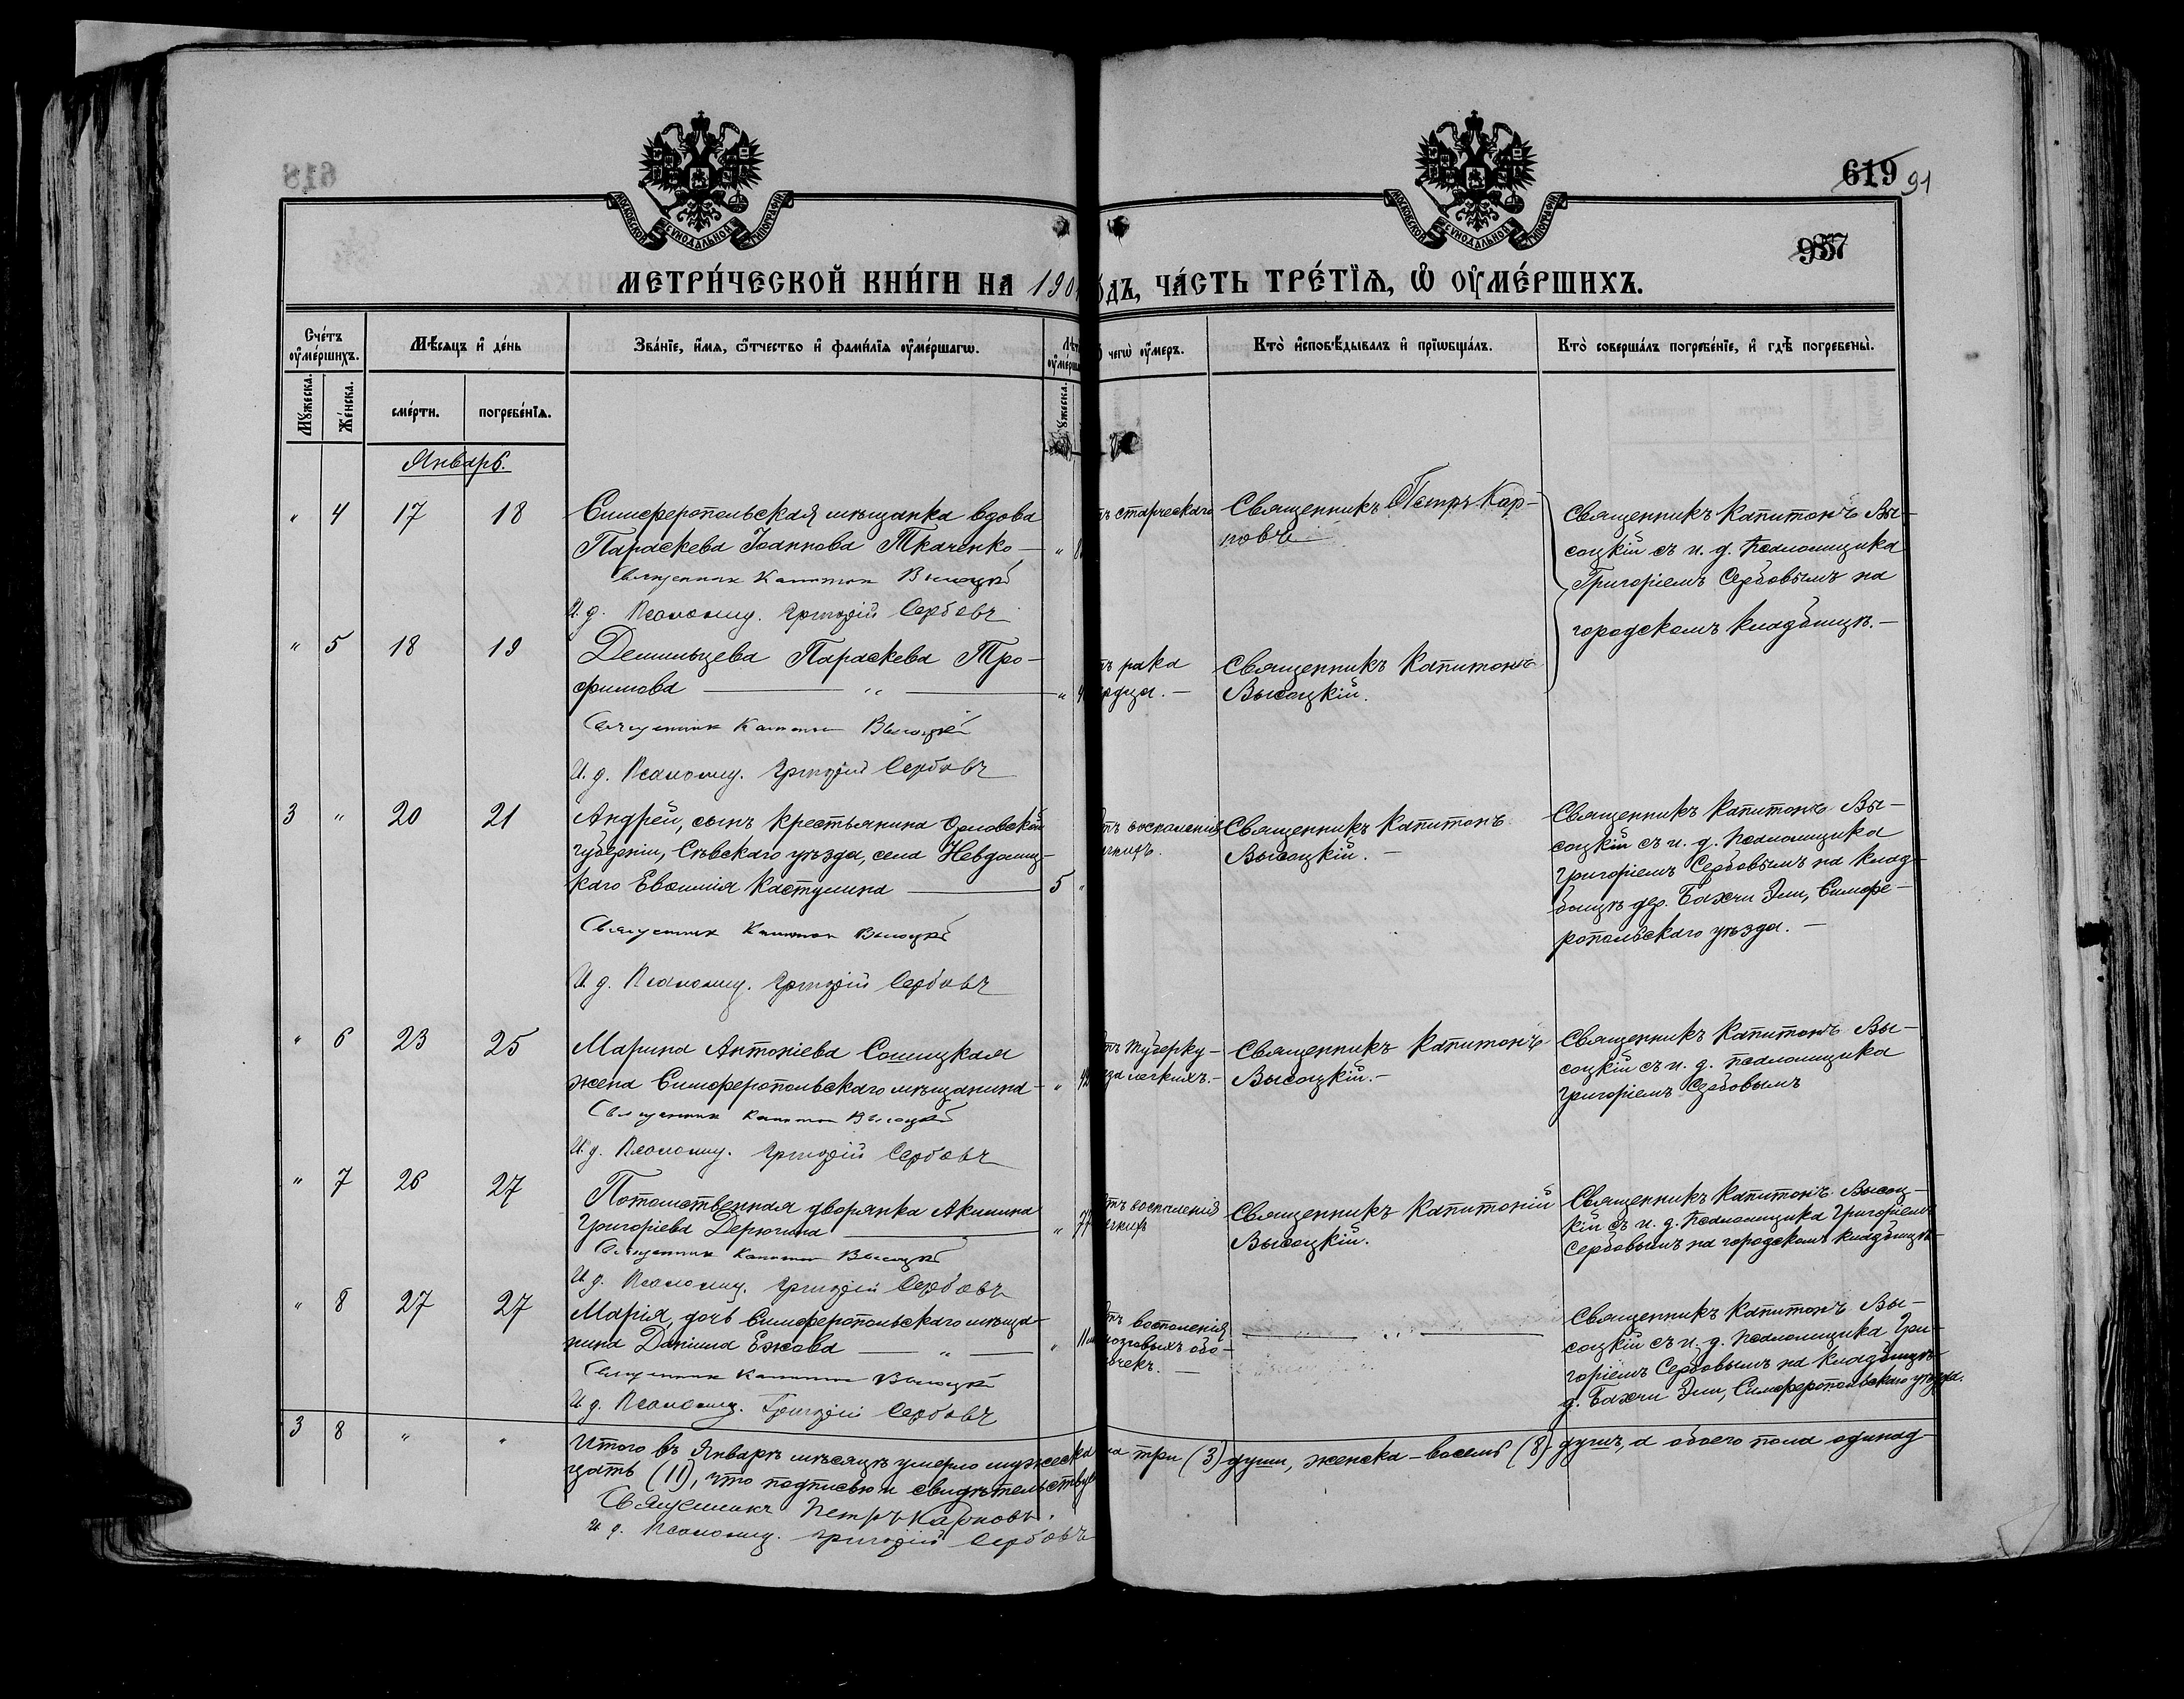 618
619 91
937
МОСКОВСКОЙ СУНОДАЛЬНОЙ ТИПОГРАФІИ
МОСКОВСКОЙ СУНОДАЛЬНОЙ ТИПОГРАФІИ
МЕТРИ́ЧЕСКОЙ КНИ́ГИ НА 190
ѻ́ДЪ, ЧА́СТЬ ТРЕ́ТЇѦ, Ѽ ОУ҆МЕ́РШИХЪ.
Сче́тъ оу҆ме́ршихъ.
Мꙋжеска.
Же́нска.
Мѣ́сѧцъ и҆ де́нь
сме́рти.
погребе́нїѧ.
Зва́нїе, и҆́мѧ, ѻ҆́тчество и҆ фами́лїѧ оу҆ме́ршагѡ.
чегѡ̀ оу҆́меръ.
Кто̀ и҆сповѣ́дывалъ и҆ прїѡбща́лъ.
Кто̀ соверша́лъ погребе́нїе, и҆ гдѣ̀ погребены̀.
Январь.
" 4 17 18 Симферопольская мѣщанка вдова
Параскева Іоаннова Ткаченко —
Священник Капитон Высоцкій
И. д. Псаломщ. Григорій Сербовъ
тъ старческаго
Священникъ Петръ Кар-
повъ
Священникъ Капитонъ Вы-
соцкій съ и. д. псаломщика
Григоріемъ Сербовымъ на
городскомъ кладбищѣ. —
" 5 18 19 Демильцева Параскева Тро-
фимова — " —
Священник Капитон Высоцкій
И. д. Псаломщ. Григорій Сербовъ
тъ рака
рдца. —
Священникъ Капитонъ
Высоцкій.
3 " 20 21 Андрей, сынъ крестьянина Орловской
губерніи, Сѣвскаго уѣзда, села Невдольс-
каго Евѳимія Кастулина — 5 "
Священник Капитон Высоцкій
И. д. Псаломщ. Григорій Сербовъ
тъ воспаленія
гкихъ.
Священникъ Капитонъ
Высоцкій. —
Священникъ Капитонъ Вы-
соцкій съ и. д. псаломщика
Григоріемъ Сербовымъ на клад-
бищѣ дер. Бахчи Эли, Симфе-
ропольскаго уѣзда. —
" 6 23 25 Марина Антоніева Сошицкая
жена Симферопольскаго мѣщанина — "
Священник Капитон Высоцкій
И. д. Псаломщ. Григорій Сербовъ
тъ туберку-
за легкихъ. —
Священникъ Капитонъ
Высоцкій. —
Священникъ Капитонъ Вы-
соцкій съ и. д. псаломщика
Григоріемъ Сербовымъ
" 7 26 27 Потомственная дворянка Акилина
Григоріева Дерюгина — " 77
Священник Капитон Высоцкій
И. д. Псаломщ. Григорій Сербовъ
тъ воспаленія
гкихъ
Священникъ Капитоній
Высоцкій.
Священникъ Капитонъ Высоц-
кій съ и. д. псаломщика Григоріемъ
Сербовымъ на городскомъ кладбищѣ
" 8 27 27 Марія, дочь Симферопольскаго мѣща-
нина Даніила Ежова — " — " 11
Священник Капитон Высоцкій
И. д. Псаломщ. Григорій Сербовъ
тъ воспаленія
мозговыхъ обо-
чекъ. —
— " —
Священникъ Капитонъ Вы-
соцкій съ и. д. псаломщика Гри-
горіемъ Сербовымъ на кладбищѣ
д. Бахчи Эли, Симферопольскаго уѣзда.
3 8 " " Итого въ Январѣ мѣсяцѣ умерло мужеска
па три (3) души, женска – восемь (8) душъ, а обоего пола одинад-
цать (11), что подписью и свидѣтельству
Священникъ Петръ Карповъ.
И. д. Псаломщ. Григорій Сербовъ